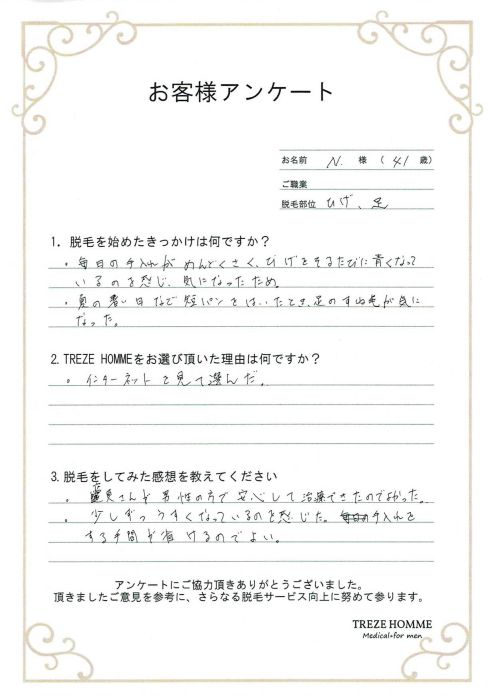 お客様アンケート
お名前 N. 様 ( 41 歳)
ご職業
脱毛部位 ひげ、足
1. 脱毛を始めたきっかけは何ですか?
・毎日の手入れがめんどくさく、ひげをそるたびに青くなって
いるのを感じ、気になったため。
・夏の暑い日などで短パンをはいたとき、足のすね毛が気に
なった。
2. TREZE HOMMEをお選び頂いた理由は何ですか?
・インターネットで見て選んだ。
3. 脱毛をしてみた感想を教えてください
・店員さんが男性の方で安心して治療できたのでよかった。
・少しずつうすくなっているのを感じた。手入れを
する手間が省けるのでよい。
アンケートにご協力頂きありがとうございました。
頂きましたご意見を参考に、さらなる脱毛サービス向上に努めて参ります。
TREZE HOMME
Medical・for men